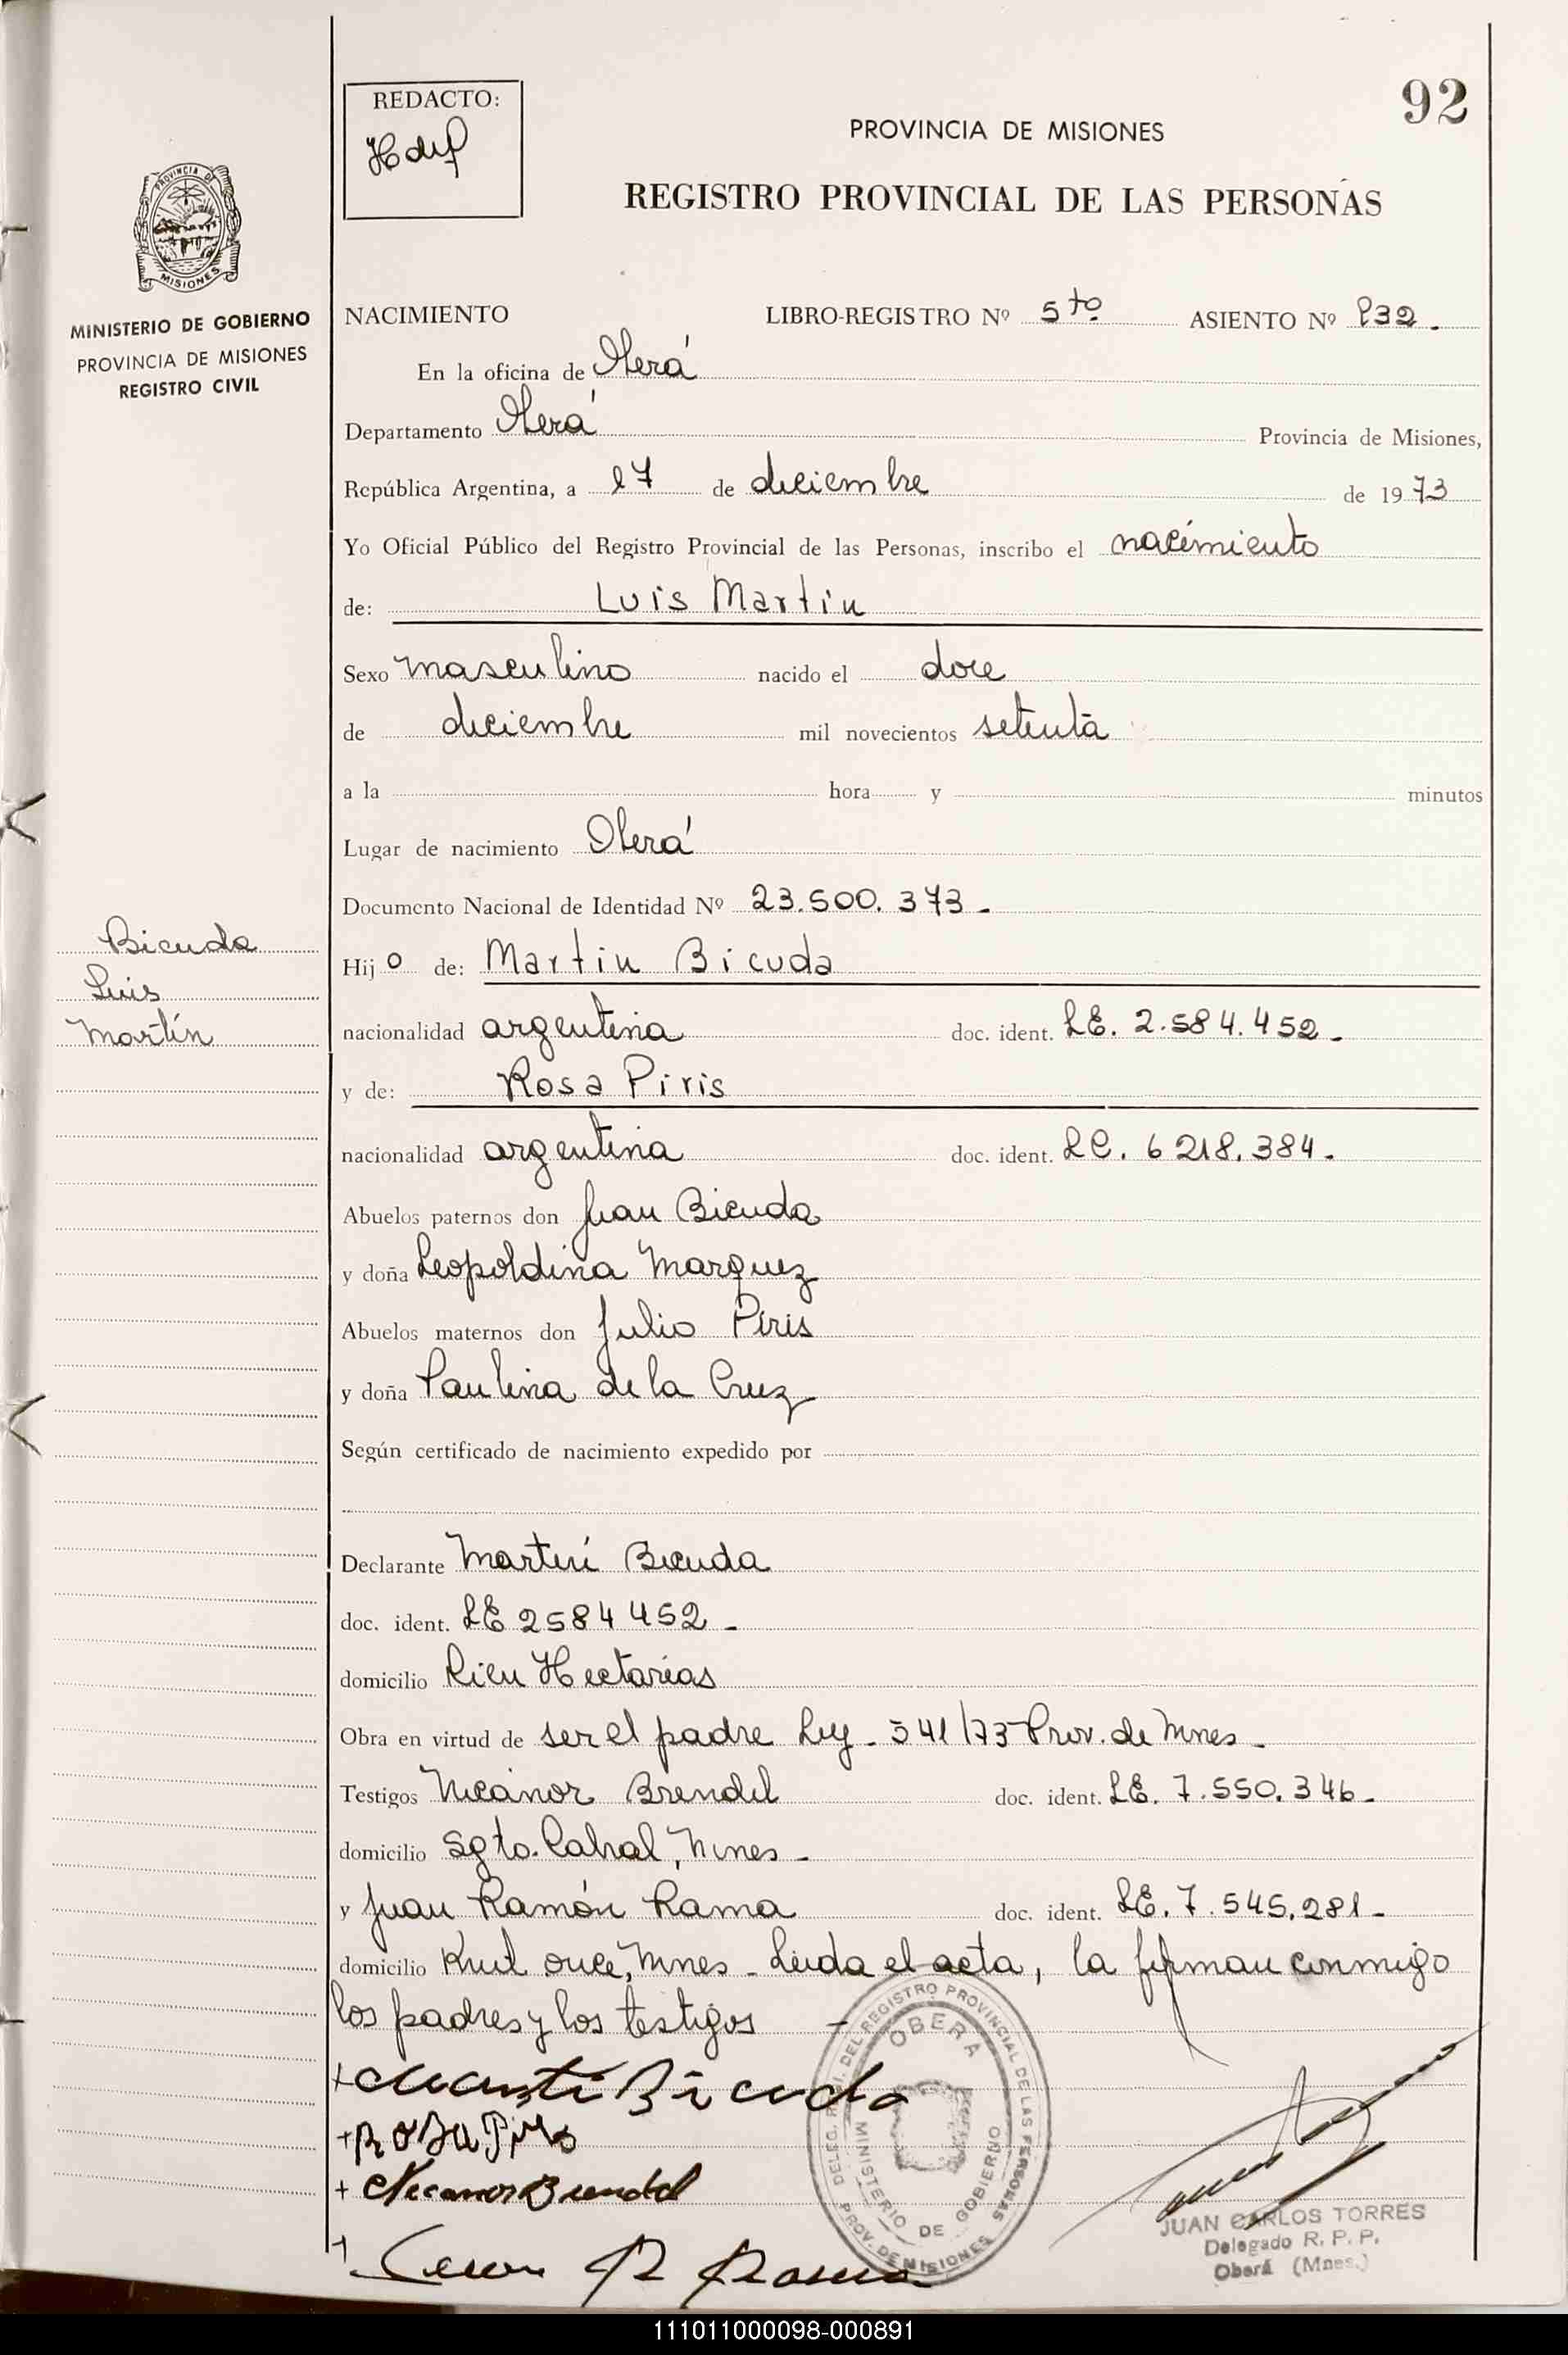 92
REDACTO:
PROVINCIA DE MISIONES
REGISTRO PROVINCIAL DE LAS PERSONAS
PROVINCIA DE
MISIONES
MINISTERIO DE GOBIERNO
PROVINCIA DE MISIONES
REGISTRO CIVIL
NACIMIENTO LIBRO-REGISTRO Nº 5to ASIENTO Nº 832.
En la oficina de Oberá
Departamento Oberá Provincia de Misiones,
República Argentina, a 17 de diciembre de 1973
Yo Oficial Público del Registro Provincial de las Personas, inscribo el nacimiento
de: Luis Martin
Sexo masculino nacido el doce
de diciembre mil novecientos setenta
a la hora y minutos
Lugar de nacimiento Oberá
Documento Nacional de Identidad Nº 23.500.373.-
Bicuda
Luis
Martín
Hijo de: Martin Bicuda
nacionalidad argentina doc. ident. LE. 2.584.452.-
y de: Rosa Piris
nacionalidad argentina doc. ident. LC. 6 218.384.-
Abuelos paternos don Juan Bicuda
y doña Leopoldina Marquez
Abuelos maternos don Julio Piris
y doña Paulina de la Cruz
Según certificado de nacimiento expedido por
Declarante Martín Bicuda
doc. ident. LE 2584452-
domicilio Cien Hectarias
Obra en virtud de ser el padre Ley - 541/73 Prov. de Mnes-
Testigos Nicanor Brendel doc. ident. LE. 7.550.346-
domicilio Sgto. Cabral, Mnes-
y Juan Ramón Rama doc. ident. LE. 7.545.281-
domicilio Kmt. once, Mnes- Leida el acta, la firman conmigo
los padres y los testigos -
+ Martin Bicuda
+ ROSA Piris
+ Nicanor Brendel
+ Juan R Rama
DELEG. DEL REGISTRO PROVINCIAL DE LAS PERSONAS
OBERA
MINISTERIO DE GOBIERNO
PROV. DE MISIONES
JUAN CARLOS TORRES
Delegado R. P. P.
Oberá (Mnes.)
111011000098-000891